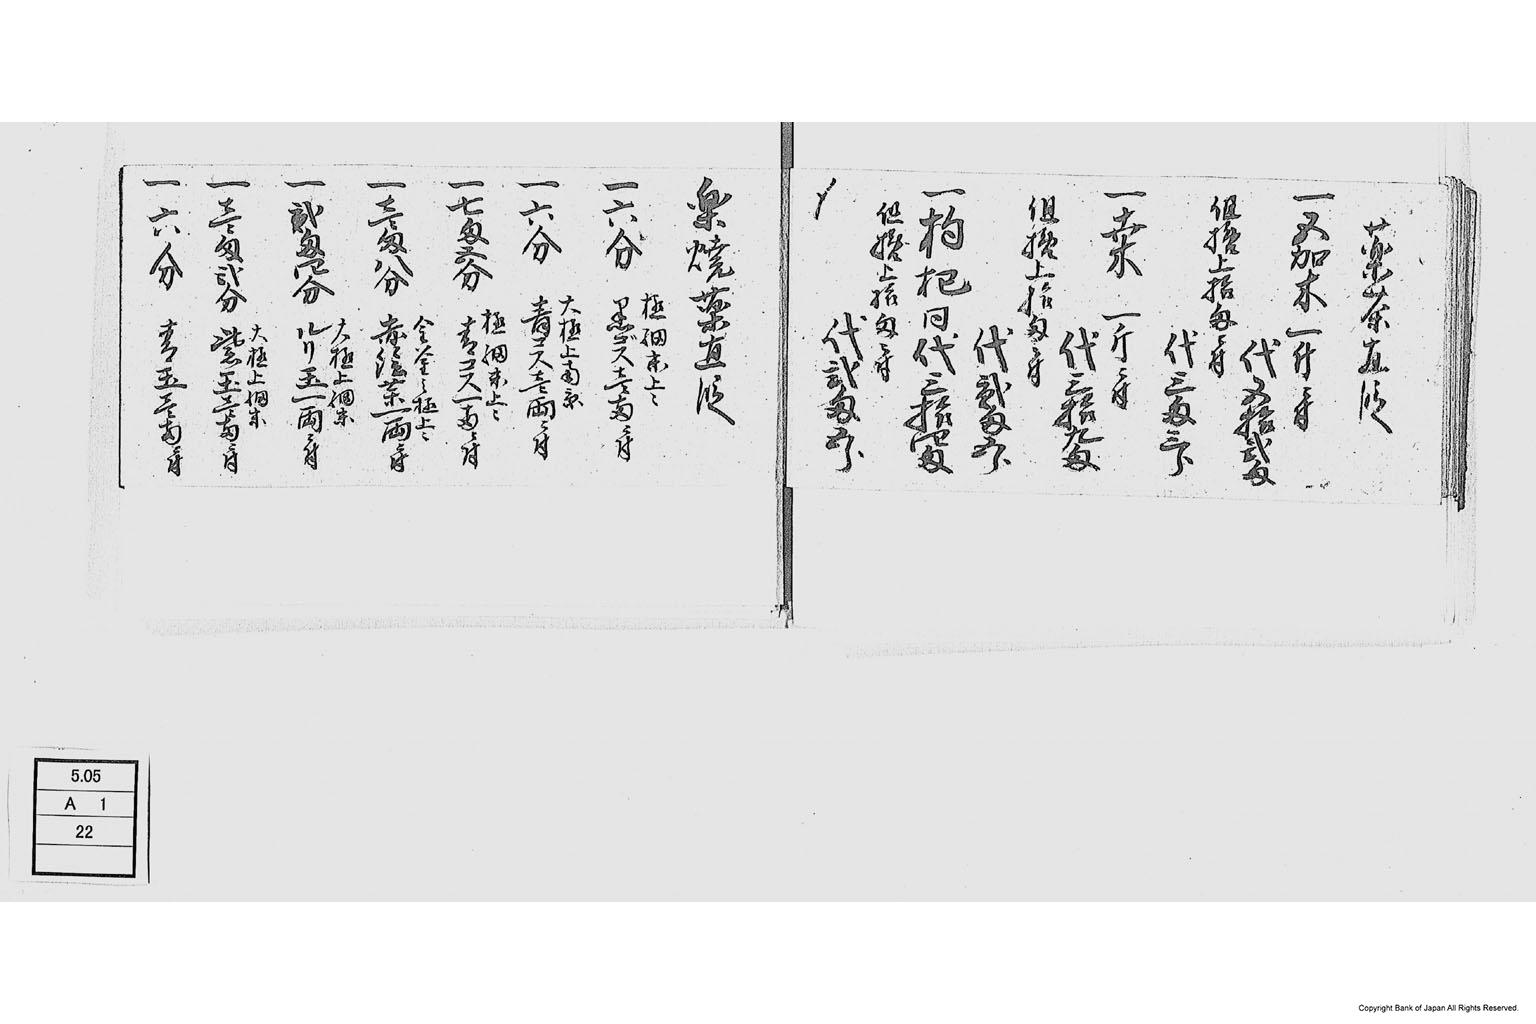 薬茶直段
一五加木一斤ニ付
代五拾弐匁
但極上拾匁ニ付
代三匁三分
一桑木 一斤ニ付
代三拾九匁
但極上拾匁ニ付
代弐匁五分
一枸杞同代三拾四匁
但極上拾匁ニ付
代弐匁五分
楽焼薬直段
極細末上々
一六分 黒ゴス壱両ニ付
大極上南京
一六分 青ゴス壱両ニ付
極細末上々
一七匁五分 青ゴス一両ニ付
極上々
一壱匁八分 赤絵薬一両ニ付
大極上細末
一弐匁四分 ルリ玉一両ニ付
大極上細末
一壱匁弐分 紫玉壱両ニ付
一六分 青玉壱両ニ付
5.05
A 1
22
Copyright Bank of Japan All Rights Reserved.